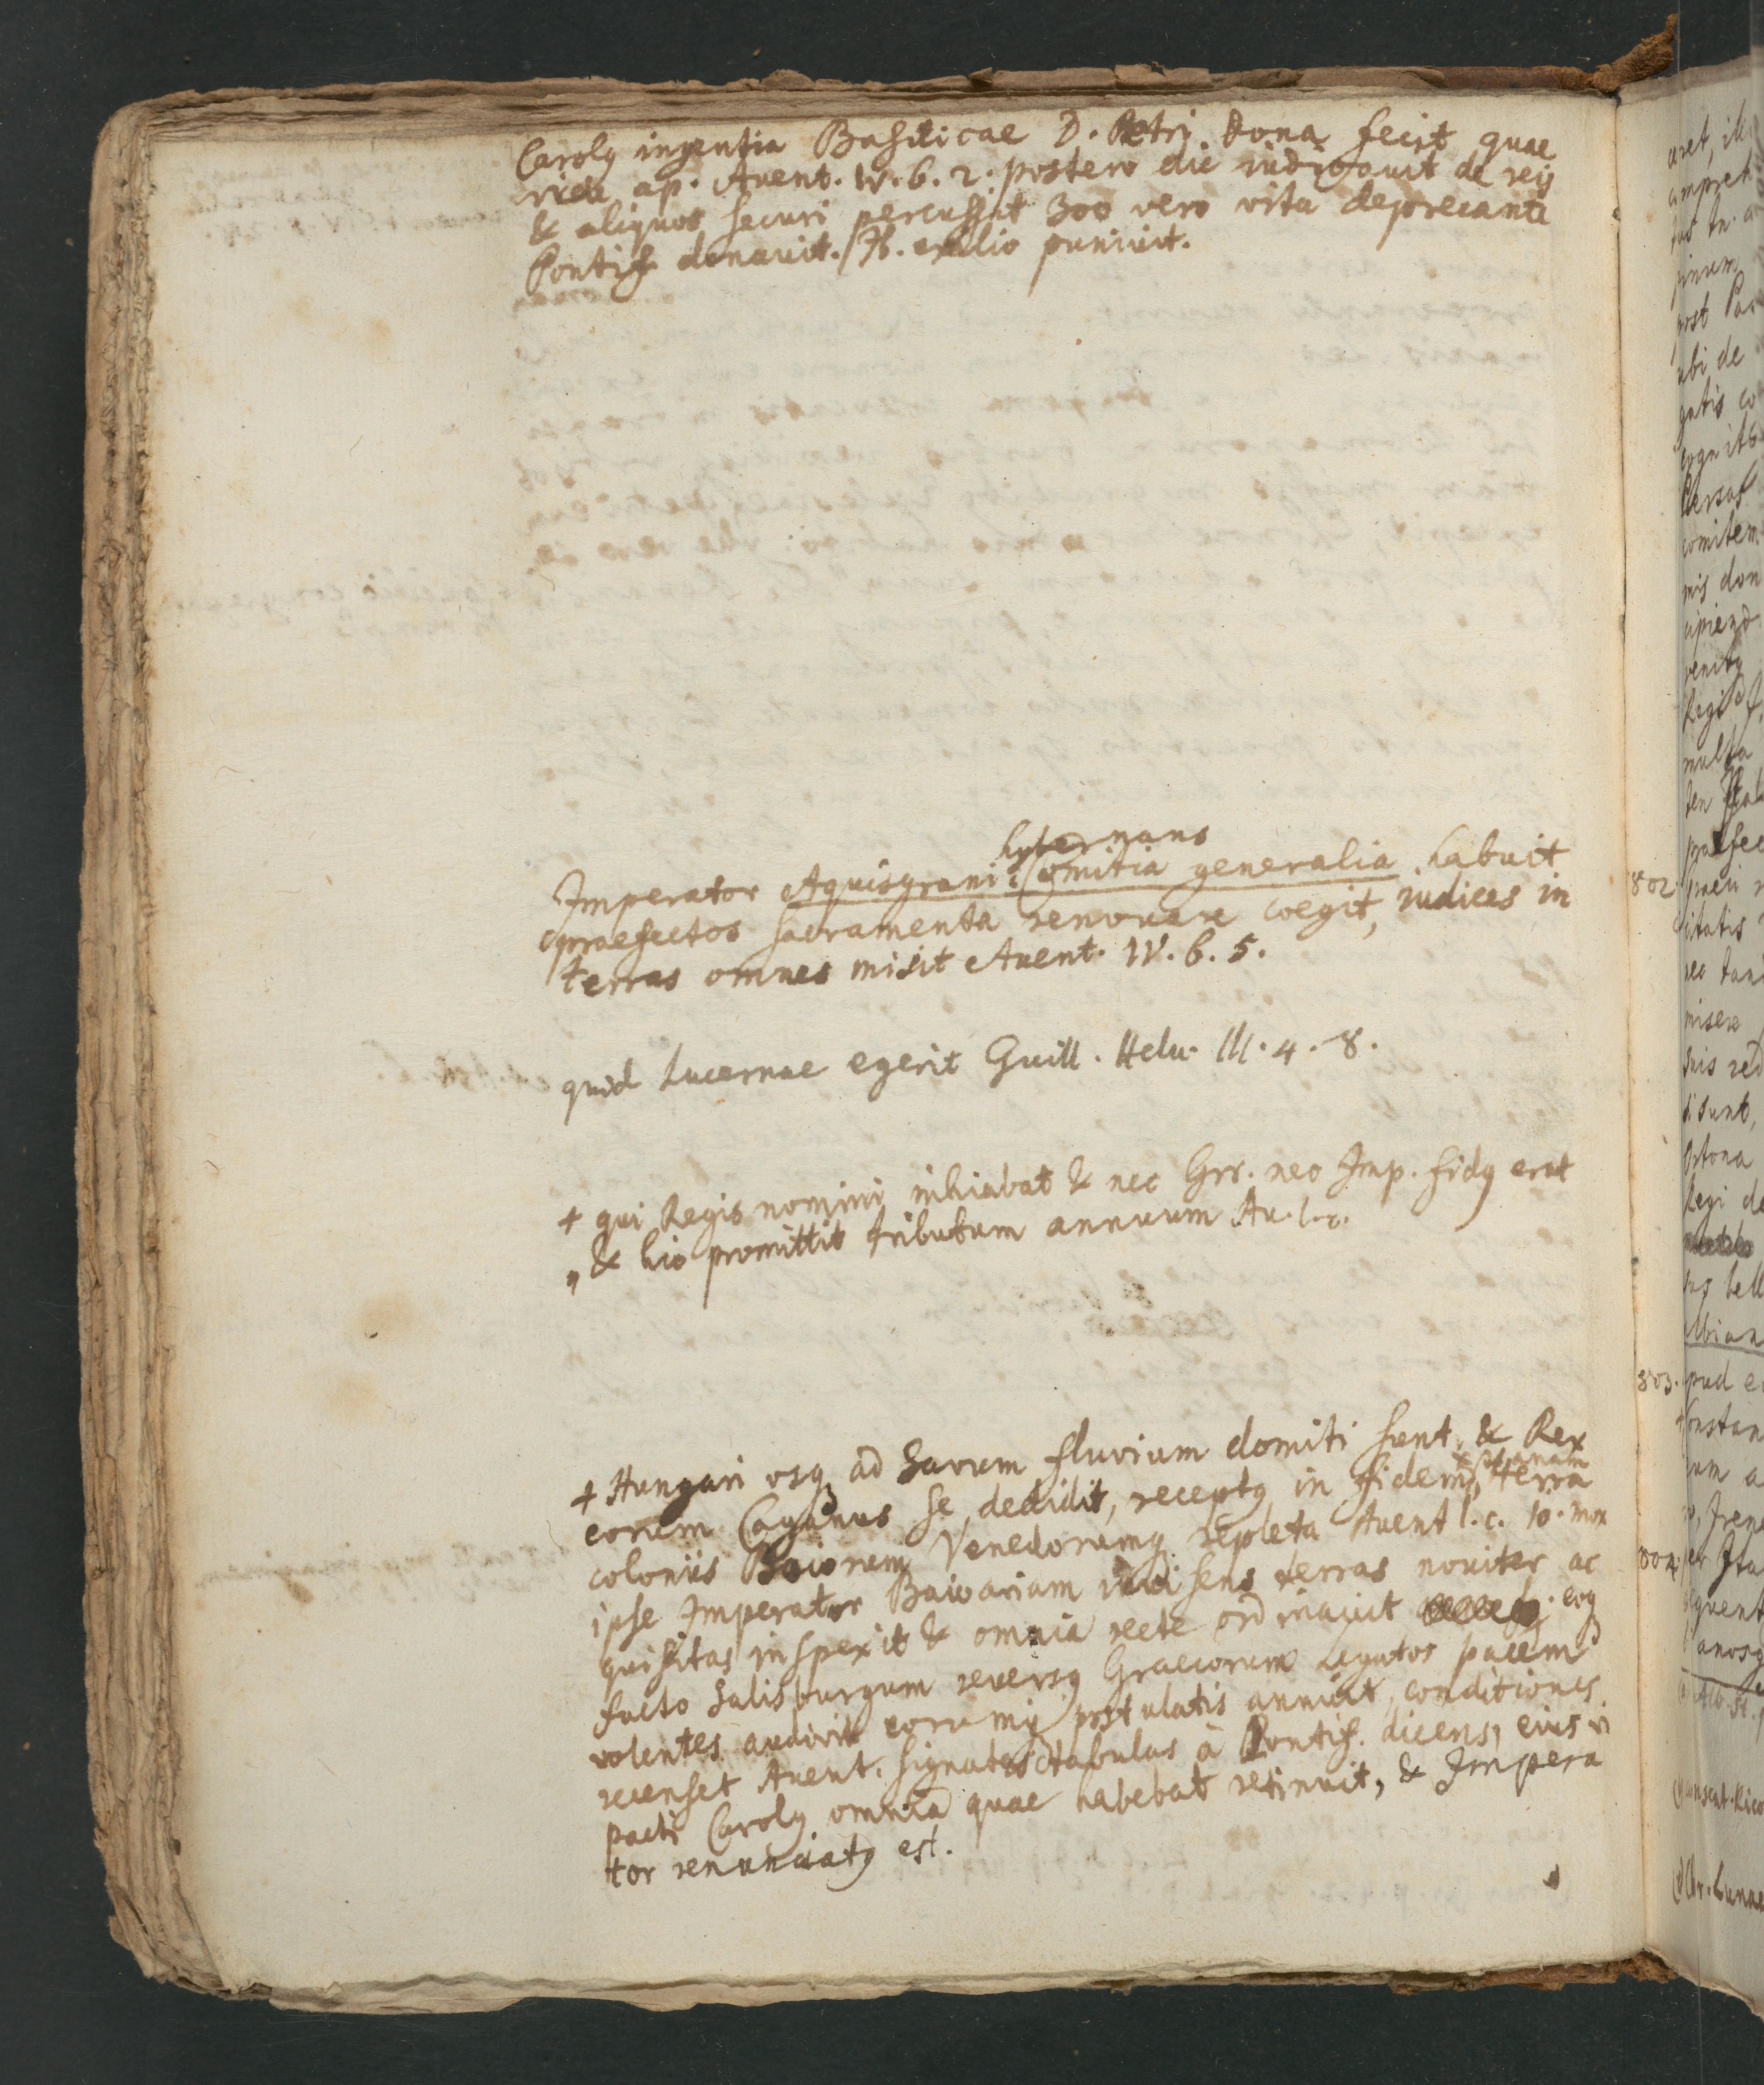 Carolꝯ ingentia Basilicae D. Petri dona fecit quae
vide ap. Avent. IV. 6. 2. postero die iudicavit de reis
& aliquos securi percussit 300 vero vita deprecante
Pontif. donavit. exilio punivit.
hybernans
Imperator Aquisgrani Comitia generalia habuit
praefectos sacramenta renovare coegit, iudices in
terras omnes misit Avent. IV. 6. 5.
quid Lucernae egerit Guill. Helv. III. 4. 8.
+ qui Regis nomini inhiabat & nec Grr. nec Imp. fidꝯ erat
& hic promittit tributum annuum Av. l. c.
+ Hungari usq ad Savum fluvium domiti sunt, & Rex
eorum Caganus se dedidit, receptꝯ in fidem, terra
coloniis Boiorum Venedorumq repleta Avent l. c. 10. mox
ipse Imperator Baivariam invisens terras noviter ac
quisitas inspexit & omnia recte ordinavit eoq
facto Salisburgum reversꝯ Graecorum legatos pacem
volentes audivit eorumq postulatis annuit, conditiones
recenset Avent. signatas tabulas à Pontif. dicens, eius vi
pacti Carolꝯ omnia quae habebat retinuit, & Impera
tor renunciatꝯ est.
802
803.
804
post Pa
ubi de
gatis co
cognit
Persas
comitem
mis don
Regi
multa
praefec
misere
suis red
sunt,
Ortona
Regi de
bell
albian